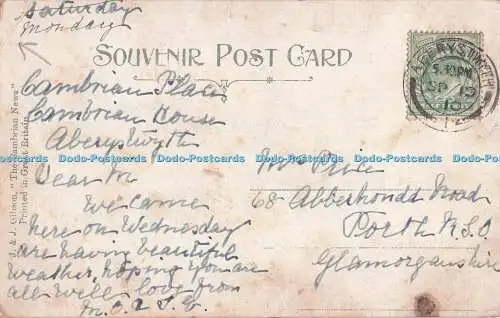 Saturday
Monday
SOUVENIR POST CARD
Cambrian Place
Cambrian House
Aberyswyth
Dear M
We came
here on Wednesday
are having beautiful
weather, hoping you are
all well love from
Mrs Price
68 Abberhondt Road
Porth R.S.O
Glamorganshire
ABERYSTWYTH
5.15PM
SP 13
J. & J. Gibson, "The Cambrian News"
Printed in Great Britain.
www.Dodo-Postcards.com Dodo-Postcards.com Dodo-Postcards.com Dodo-Postcards.com